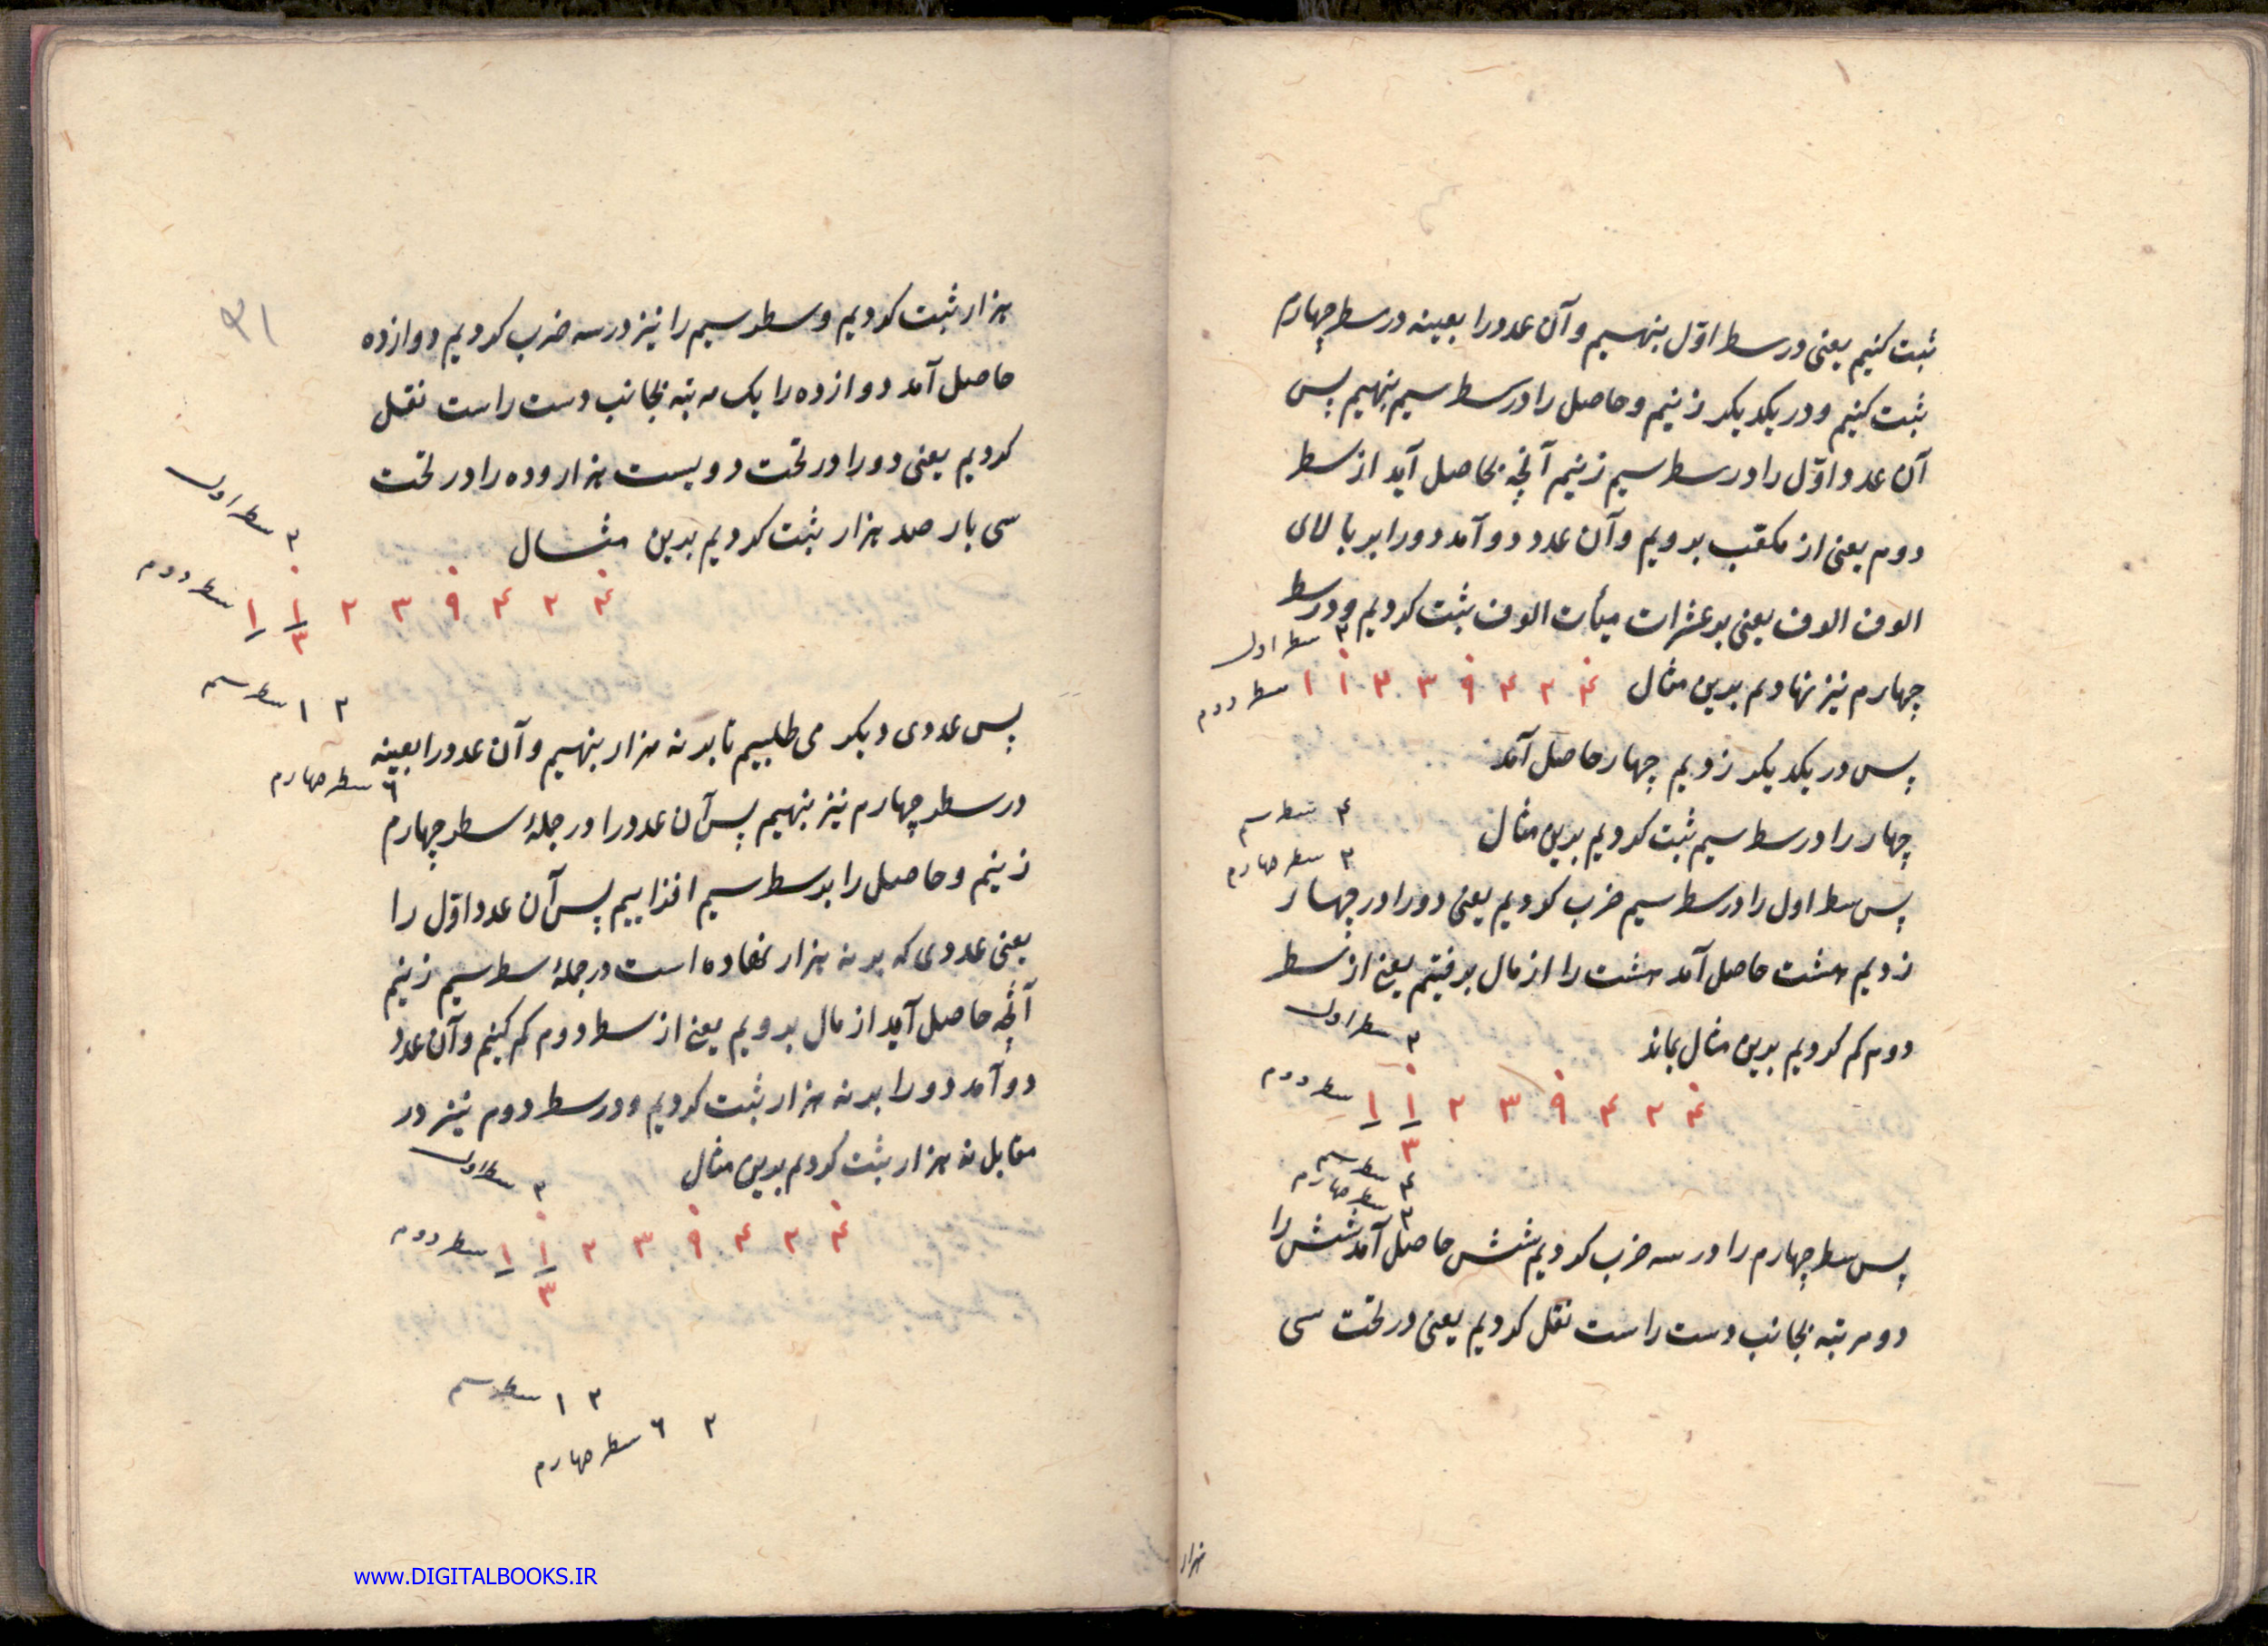 ثبت کنیم یعنی در سطر اوّل بنهیم و آن عدد را بعینه در سطر چهارم
ثبت کنیم و در یکدیکر زنیم و حاصل را در سطر سیم بنهیم پس
آن عدد اوّل را در سطر سیم زنیم آنچه بحاصل آید از سطر
دوم یعنی از مکعّب برویم و آن عدد دو آمد دو را بر بالای
الوف الوف یعنی بر عشرات میأت الوف ثبت کردیم و در سطر
۲ سطر اول
چهارم نیز نهادیم بدین مثال
۱ ۱ ۲ ۳ ۹ ۴ ۲ ۴ سطر دوم
پس در یکدیکر زدیم چهار حاصل آمد
چهار را در سطر سیم ثبت کردیم بدین مثال
۴ سطر سیم
۲ سطر چهارم
پس سطر اول را در سطر سیم ضرب کردیم یعنی دو را در چهار
زدیم هشت حاصل آمد هشت را از مال برفتیم یعنی از سطر
دوم کم کردیم بدین مثال بماند
۲ سطر اول
۱ ۱ ۲ ۳ ۹ ۴ ۲ ۴ سطر دوم
۳
۴ سطر سیم
۲ سطر چهارم
پس سطر چهارم را در سه ضرب کردیم شش حاصل آمد شش را
دو مرتبه بجانب دست راست نقل کردیم یعنی در تحت سی
هزار
هزار ثبت کردیم و سطر سیم را نیز در سه ضرب کردیم دوازده
حاصل آمد دوازده را یک مرتبه بجانب دست راست نقل
کردیم یعنی دو را در تحت دویست هزار و ده را در تحت
سی بار صد هزار ثبت کردیم بدین مثال
۲ سطر اول
۱ ۱ ۲ ۳ ۹ ۴ ۲ ۴ سطر دوم
۳
۱ ۲ سطر سیم
۶ سطر چهارم
پس عددی دیکر می طلبیم تا بر نه هزار بنهیم و آن عدد را بعینه
در سطر چهارم نیز بنهیم پس آن عدد را در جملهٔ سطر چهارم
زنیم و حاصل را بر سطر سیم افزاییم پس آن عدد اوّل را
یعنی عددی که بر نه هزار نهاده است در جملهٔ سطر سیم زنیم
آنچه حاصل آید از مال برویم یعنی از سطر دوم کم کنیم و آن عدد
دو آمد دو را بر نه هزار ثبت کردیم و در سطر دوم نیز در
مقابل نه هزار ثبت کردیم بدین مثال
۲ سطر اول
۱ ۱ ۲ ۳ ۹ ۴ ۲ ۴ سطر دوم
۳
۱ ۲ سطر سیم
۶ ۲ سطر چهارم
www.DIGITALBOOKS.IR